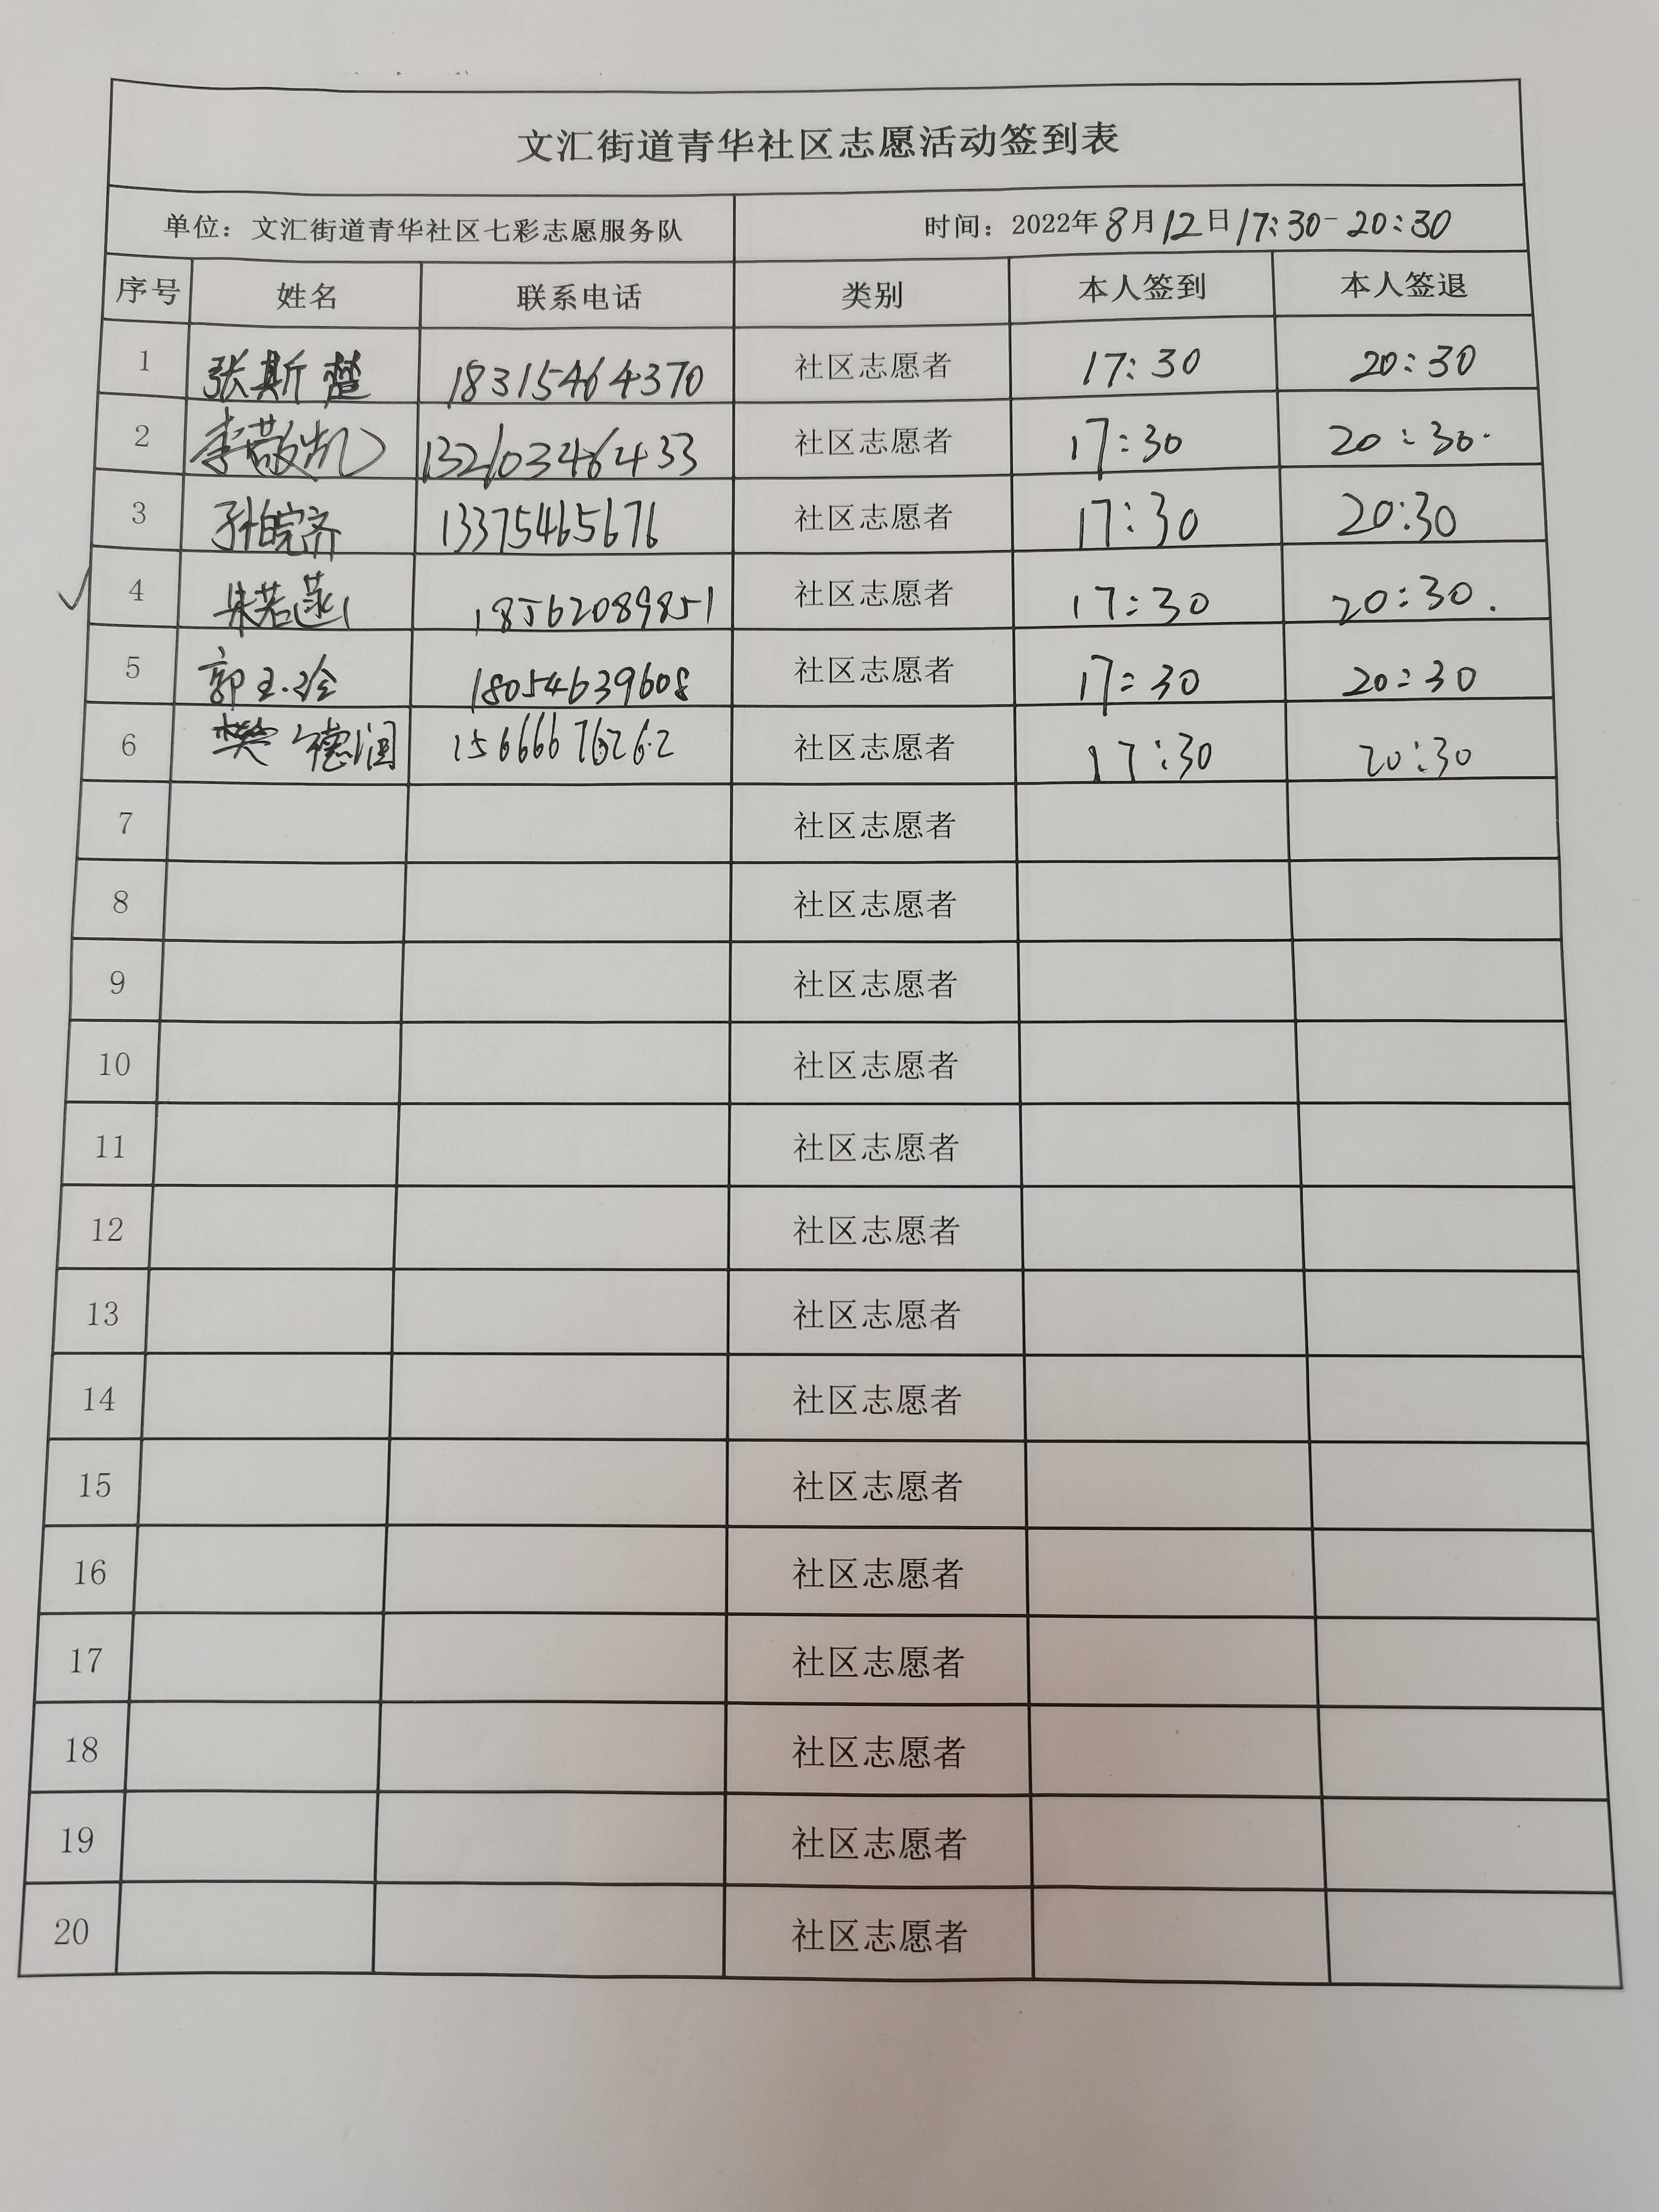 文汇街道青华社区志愿活动签到表
单位：文汇街道青华社区七彩志愿服务队 时间：2022年8月12日17:30-20:30
序号 姓名 联系电话 类别 本人签到 本人签退
1 张斯楚 18315464370 社区志愿者 17:30 20:30
2 李敬凯 社区志愿者 17:30 20:30.
3 孙皖齐 13375465676 社区志愿者 17:30 20:30
4 朱若菡 18562089851 社区志愿者 17:30 20:30.
5 郭玉玲 18054639608 社区志愿者 17:30 20:30
6 樊德润 15666676262 社区志愿者 17:30 20:30
7 社区志愿者
8 社区志愿者
9 社区志愿者
10 社区志愿者
11 社区志愿者
12 社区志愿者
13 社区志愿者
14 社区志愿者
15 社区志愿者
16 社区志愿者
17 社区志愿者
18 社区志愿者
19 社区志愿者
20 社区志愿者